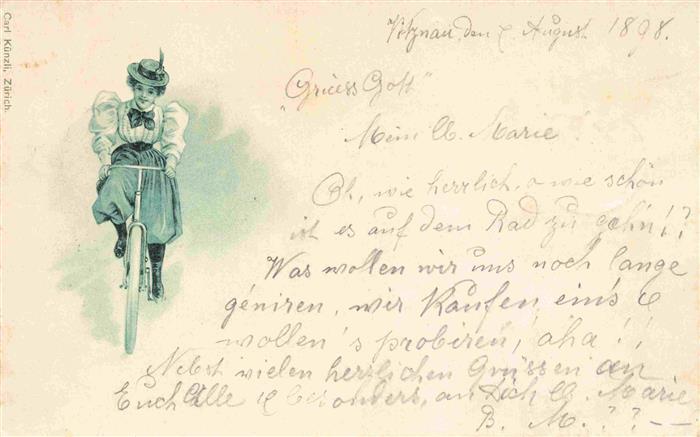 Carl Künzli, Zürich.
Vitznau, den August 1898.
"Grüess Gott"
Mein lb. Marie!
Oh, wie herrlich, o wie schön
ist es auf dem Rad zu gehn!!?
Was wollen wir uns noch lange
géniren, wir kaufen eins &
wollen's probiren, aha!!
Nebst vielen herzlichen Grüssen an
Euch Alle & besonders, an Dich lb. Marie
B. M. ? ? —